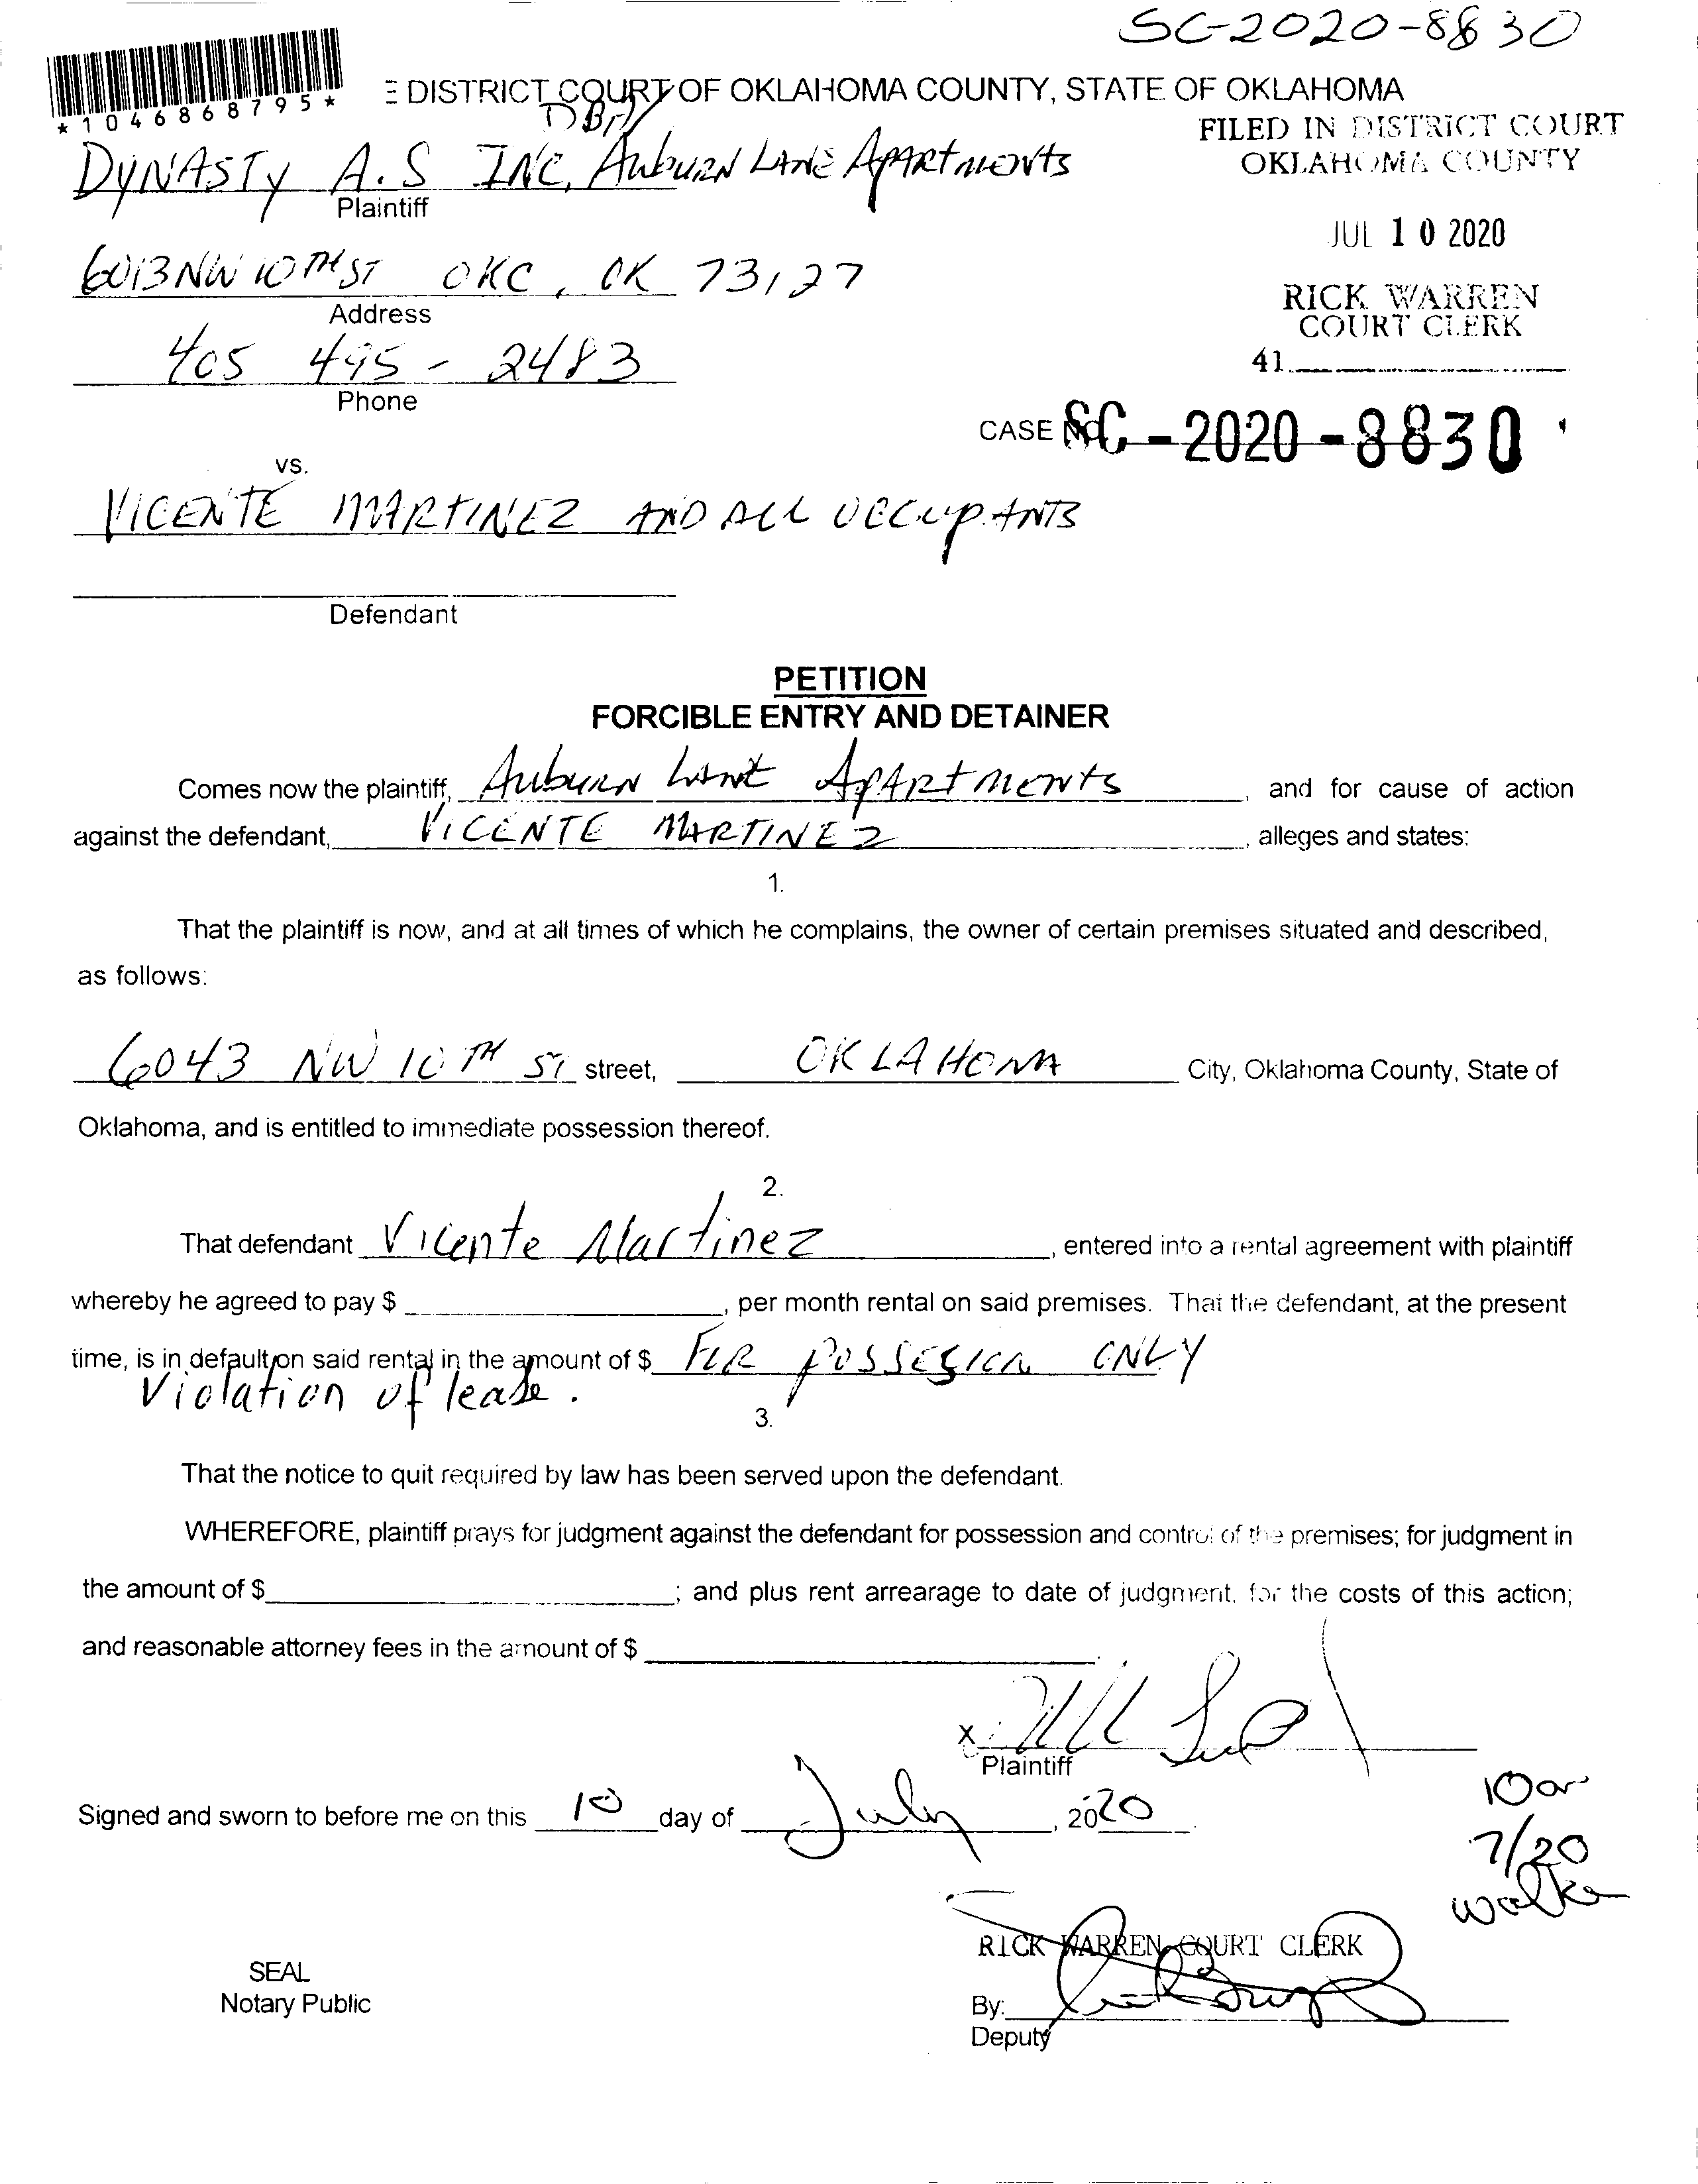 SC-2020-8830
*1046868795*
E DISTRICT COURT OF OKLAHOMA COUNTY, STATE OF OKLAHOMA
DBA
FILED IN DISTRICT COURT
OKLAHOMA COUNTY
DYNASTY A.S INC, AUBURN LANE APARTMENTS
Plaintiff
JUL 10 2020
6013 NW 10TH ST OKC, OK 73127
Address
RICK WARREN
COURT CLERK
405 495-2483
41
Phone
CASE NO. SC-2020-8830
vs.
VICENTE MARTINEZ AND ALL OCCUPANTS
Defendant
PETITION
FORCIBLE ENTRY AND DETAINER
Comes now the plaintiff, AUBURN LANE APARTMENTS, and for cause of action
against the defendant, VICENTE MARTINEZ, alleges and states:
1.
That the plaintiff is now, and at all times of which he complains, the owner of certain premises situated and described,
as follows:
6043 NW 10TH ST street, OKLAHOMA City, Oklahoma County, State of
Oklahoma, and is entitled to immediate possession thereof.
2.
That defendant Vicente Martinez, entered into a rental agreement with plaintiff
whereby he agreed to pay $, per month rental on said premises. That the defendant, at the present
time, is in default on said rental in the amount of $ FOR POSSESION ONLY
Violation of lease.
3.
That the notice to quit required by law has been served upon the defendant.
WHEREFORE, plaintiff prays for judgment against the defendant for possession and control of the premises; for judgment in
the amount of $; and plus rent arrearage to date of judgment, for the costs of this action;
and reasonable attorney fees in the amount of $
X
Plaintiff
Signed and sworn to before me on this 10 day of July, 2020
10am
7/20
Walke
RICK WARREN COURT CLERK
SEAL
Notary Public
By:
Deputy